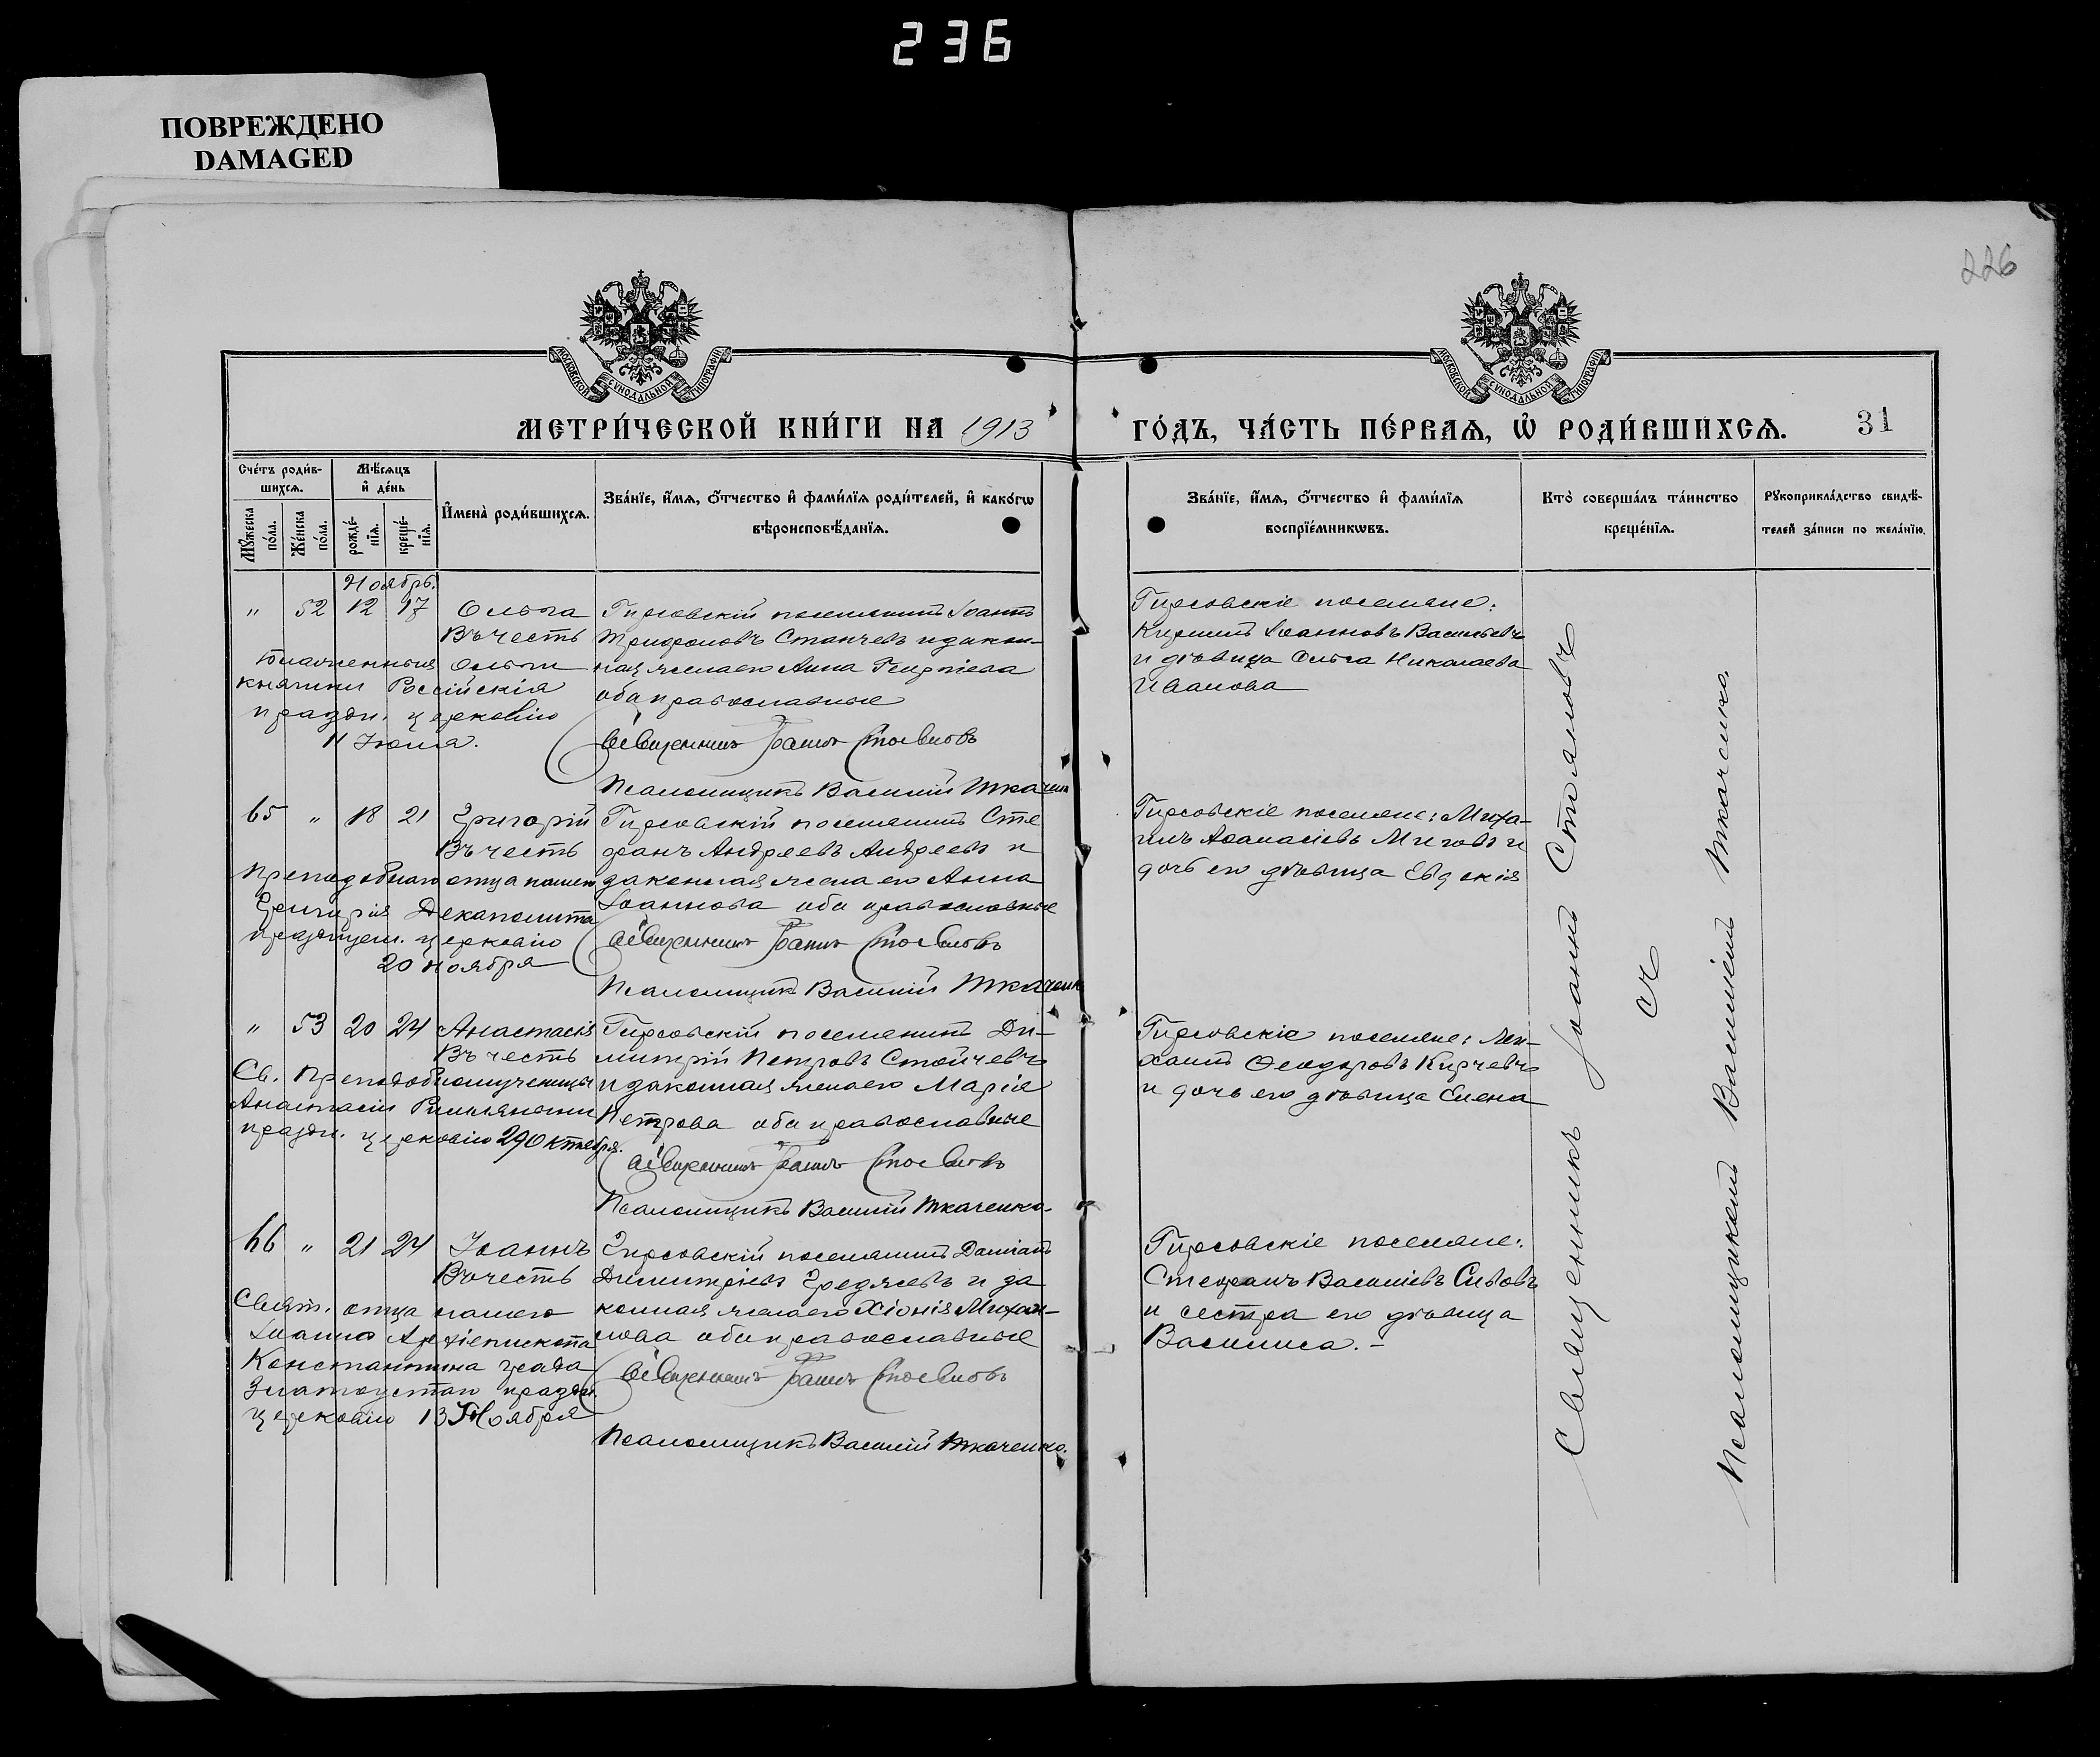 236
ПОВРЕЖДЕНО
DAMAGED
226
МОСКОВСКОЙ СУНОДАЛЬНОЙ ТИПОГРАФІИ
МОСКОВСКОЙ СУНОДАЛЬНОЙ ТИПОГРАФІИ
МЕТРИ́ЧЕСКОЙ КНИ́ГИ НА 1913
ГО́ДЪ, ЧА́СТЬ ПЕ́РВАѦ, Ѡ҆ РОДИ́ВШИХСѦ. 31
Сче́тъ роди́в-
шихсѧ.
Мꙋ́жеска по́ла.
Же́нска по́ла.
Мѣ́сѧцъ
и҆ де́нь
рожде́-
нїѧ.
креще́-
нїѧ.
И҆мена̀ роди́вшихсѧ.
Зва́нїе, и҆́мѧ, ѻ҆́тчество и҆ фами́лїѧ роди́телей, и҆ како́гѡ
вѣроисповѣ́данїѧ.
Зва́нїе, и҆́мѧ, ѻ҆́тчество и҆ фами́лїѧ
воспрїе́мникѡвъ.
Кто̀ соверша́лъ та́инство
креще́нїѧ.
Рꙋкоприкла́дство свидѣ́-
телей за́писи по жела́нїю.
Ноябрь.
" 52 12 17 Ольга
Въ честь
блаженныя Ольги
княгини Россійскія
праздн. церковію
11 Іюля.
Гирсовскій поселянинъ Іоаннъ
Трифоновъ Станчевъ и закон-
ная жена его Анна Георгіева
оба православные
Священникъ Іоаннъ Стояновъ
Псаломщикъ Василій Ткаченко
Гирсовскіе поселяне:
Кириллъ Іоанновъ Васильевъ
и дѣвица Ольга Николаева
Иванова
65 " 18 21 Григорій
Въ честь
Преподобнаго отца нашего
Григорія Декаполита
празднуем. церковію
20 ноября
Гирсовскій поселянинъ Сте
фанъ Андреевъ Андреевъ и
законная жена его Анна
Іоаннова оба православные
Священникъ Іоаннъ Стояновъ
Псаломщикъ Василій Ткаченко
Гирсовскіе поселяне: Миха-
илъ Аѳанасіевъ Миговъ и
дочь его дѣвица Евдокія
" 53 20 24 Анастасія
Въ честь
Св. Преподобномученицы
Анастасіи Римляныни
праздн. церковію 29 Октября.
Гирсовскій поселянинъ Ди-
митрій Петровъ Стойчевъ
и законная жена его Марія
Петрова оба православные
Священникъ Іоаннъ Стояновъ
Псаломщикъ Василій Ткаченко.
Гирсовскіе поселяне:
Ѳеодоровъ Кирчевъ
и дочь его дѣвица Елена
66 " 21 24 Іоаннъ
Въ честь
Святт. отца нашего
Іоанна Архіепископа
Константина града
Златоустаго праздн
церковію 13 Ноября
Гирсовскій поселянинъ Даміанъ
Димитріевъ и за
конная жена его Хіонія Михаи-
лова оба православные
Священникъ Іоаннъ Стояновъ
Псаломщикъ Василій Ткаченко.
Гирсовскіе поселяне:
Стефанъ Василіевъ Сивовъ
и сестра его дѣвица
Василиса.-
Священникъ Іоаннъ Стояновъ
съ
Псаломщикомъ Василіемъ Ткаченко.